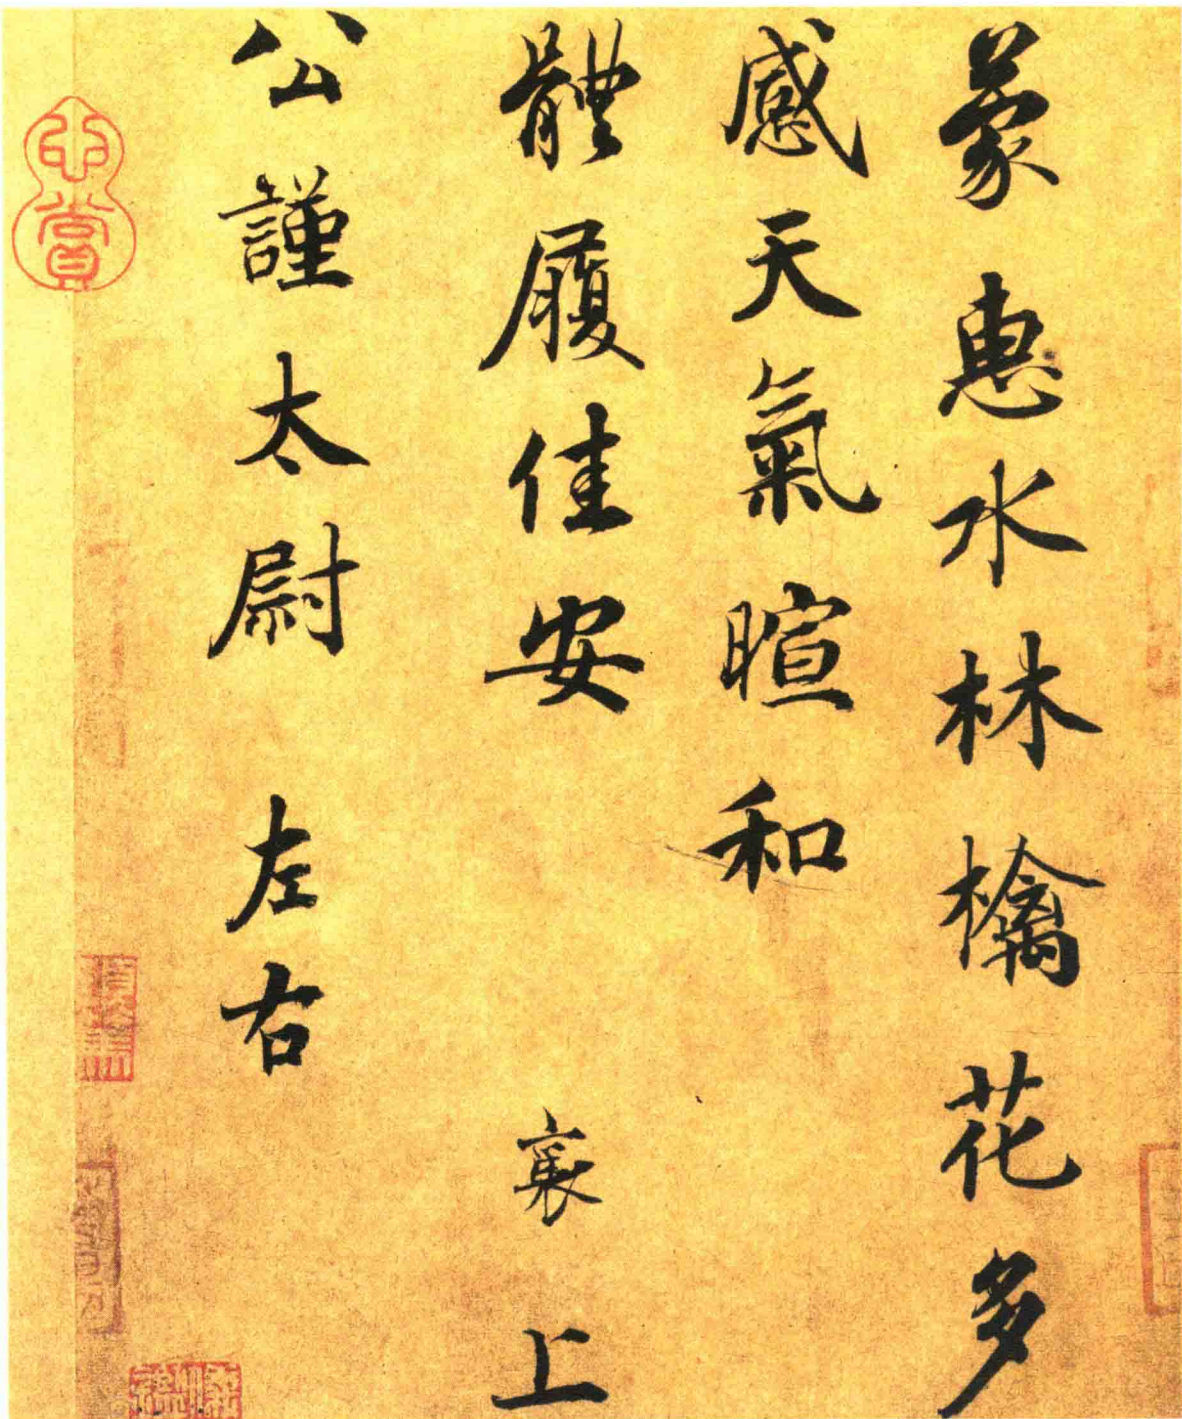 蒙惠水林檎花多
感天氣暄和
體履佳安 襄上
公謹太尉 左右
心賞